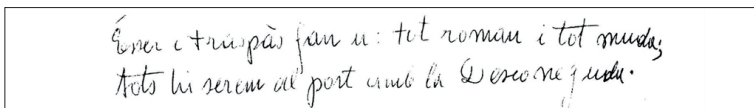 Ésser e traspàs fan u: tot roman i tot muda;
Tots hi serem al port amb la Desconeguda.